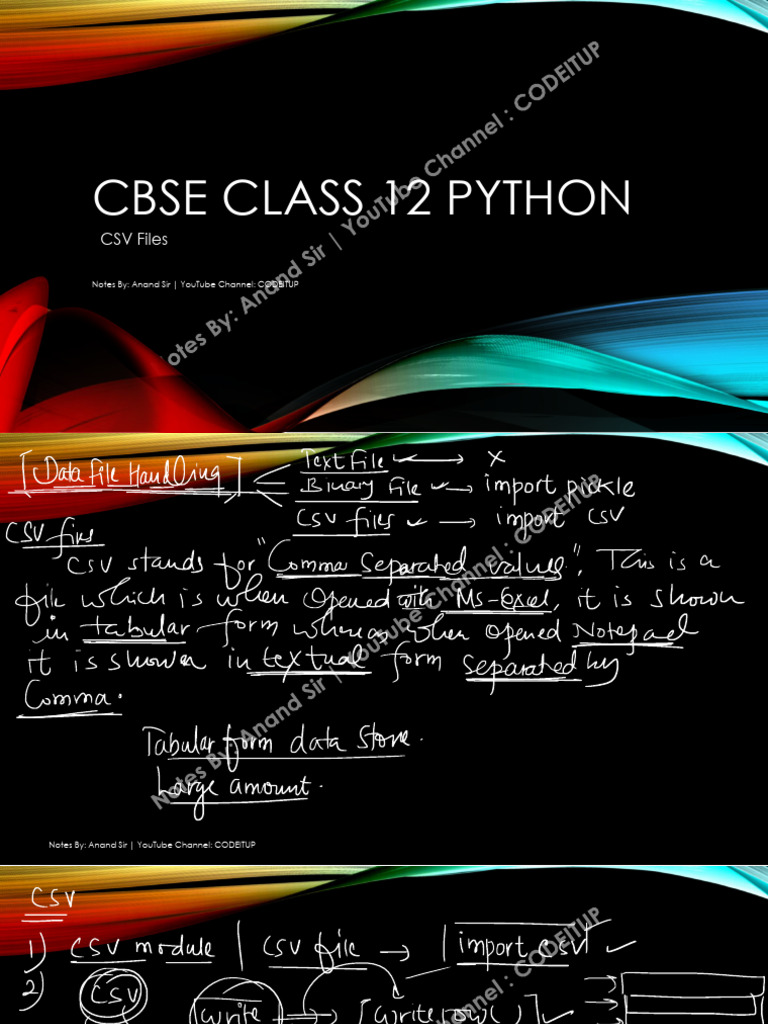 CBSE CLASS 12 PYTHON
CSV Files
Notes By: Anand Sir | YouTube Channel: CODEITUP
Notes By: Anand Sir | YouTube Channel : CODEITUP
[Data File Handling]
Text File → x
Binary File → import pickle
CSV files → import CSV
CSV files
CSV stands for "Comma Separated values". This is a
file which is when opened with Ms-Excel, it is shown
in tabular form whereas when opened Notepad
it is shown in textual form separated by
Comma.
Tabular form data store.
Large amount.
Notes By: Anand Sir | YouTube Channel : CODEITUP
Notes By: Anand Sir | YouTube Channel: CODEITUP
CSV
1) CSV module | CSV file → | import csv
2) CSV write → [writerow()]
Channel : CODEITUP